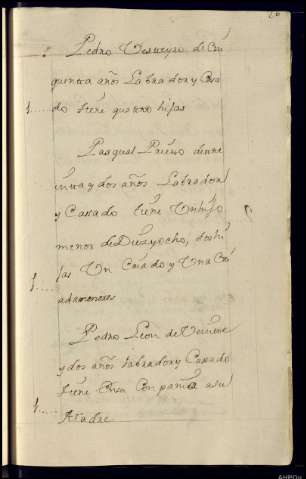 Pedro de Cin
quenta años Labrador y Casa
1..... do tiene quatro hijas
Pasqual Prieto de tre
inta y dos años Labrador
y Casado tiene Un hijo
menor de Diez y ocho, dos hi
1..... jas Un Criado y Una Cri
ada menores
Pedro Leon de Veinte
y dos años labrador y Casado
tiene En su Compañia a su
1..... Madre